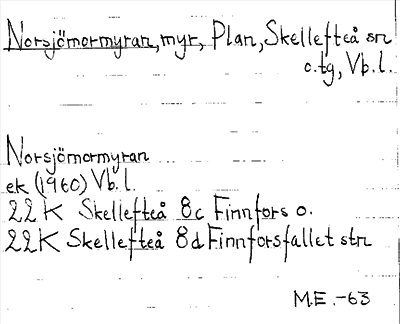 Norsjömormyran, myr, Plan, Skellefteå sn
o.tg, Vb.l.
Norsjömormyran
ek (1960) Vb.l.
22 K Skellefteå 8c Finnfors o.
22K Skellefteå 8d Finnforsfallet str
M.E.-63